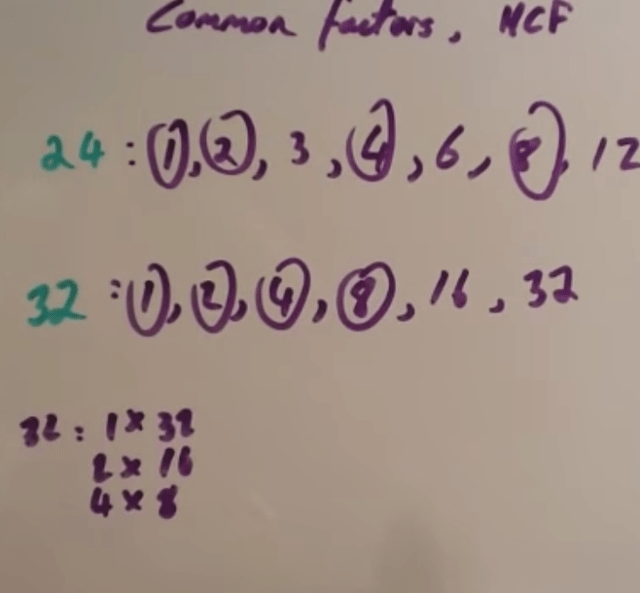 Common factors, HCF
24 : 1, 2, 3, 4, 6, 8, 12
32 : 1, 2, 4, 8, 16, 32
32 : 1 x 32
2 x 16
4 x 8